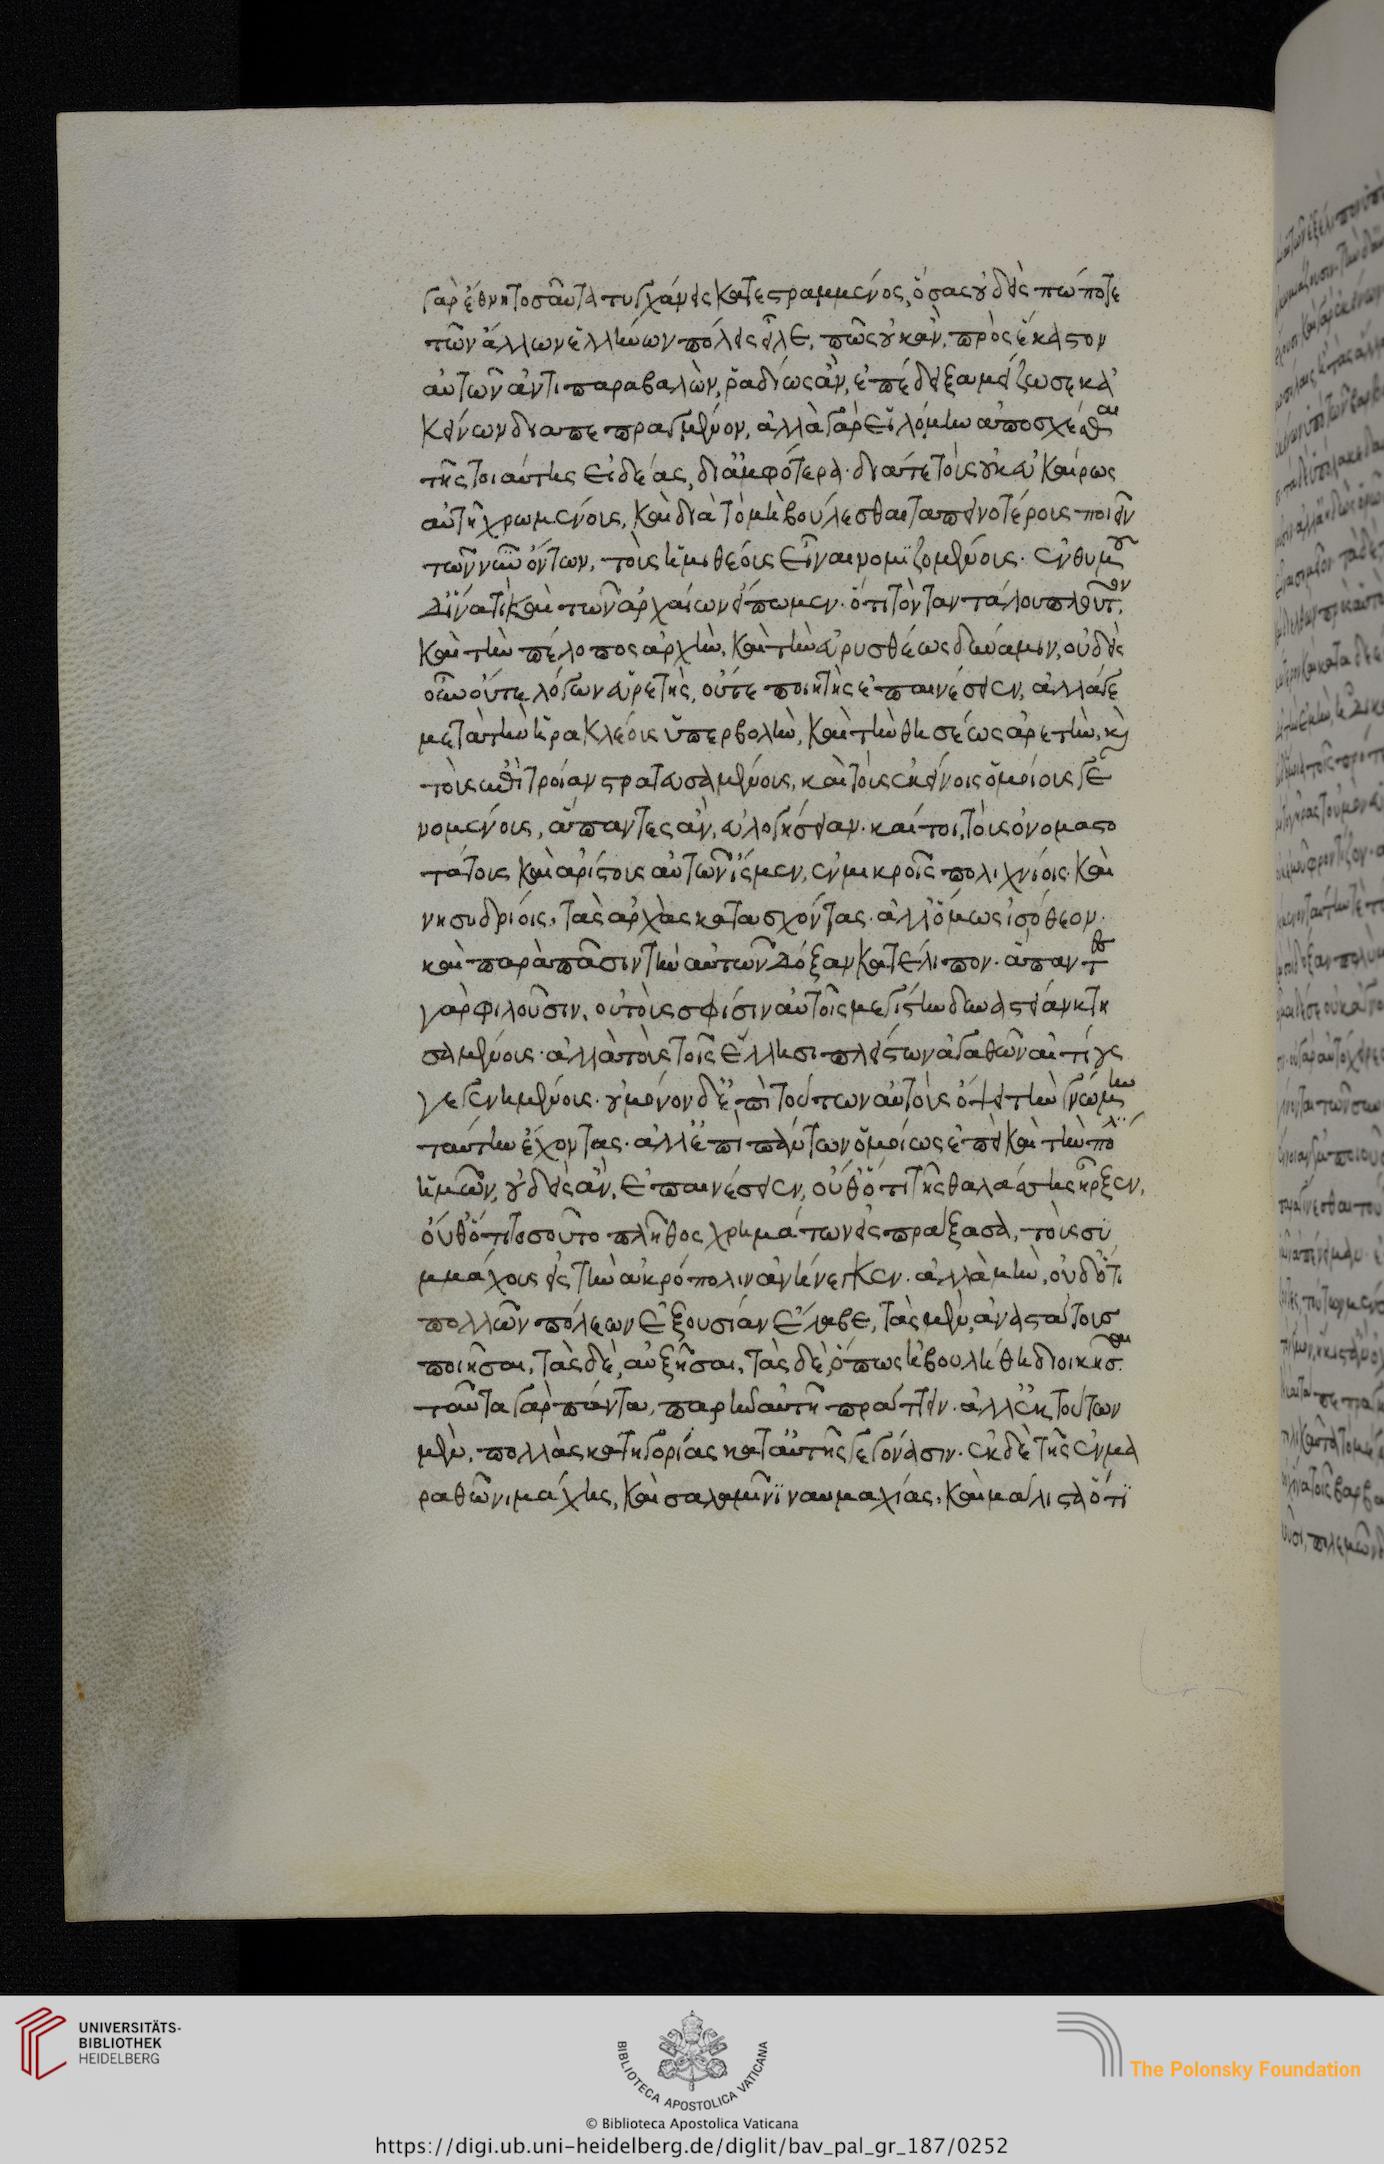 γὰρ ἔθνη τοσαῦτα τυγχάνεις κατεστραμμένος, ὅσας οὐδεὶς πώποτε
τῶν ἄλλων ἑλλήνων πόλεις εἷλε, πῶς οὐκ ἂν, πρὸς ἕκαστον
αὐτῶν ἀντιπαραβαλὼν, ῥαδίως ἂν, ἐπέδειξα μείζω σε κα
κείνων διαπεπραγμένον, ἀλλὰ γὰρ εἱλόμην ἀποσχέσθαι
τῆς τοιαύτης εἰδέας, δι ἀμφότερα· διά τε τοὺς οὐκ εὐκαίρως
αὐτῆ χρωμένοις, καὶ διὰ τὸ μὴ βούλεσθαι ταπεινοτέρους ποιεῖν
τῶν νῦν ὄντων, τοὺς ἡμιθέους εἶναι νομιζομένους. ἐνθυμοῦ
δ' ἵνα τὶ καὶ τῶν ἀρχαίων εἴπωμεν· ὅτι τὸν ταντάλου πλοῦτον,
καὶ τὴν πέλοπος ἀρχὴν, καὶ τὴν εὐρυσθέως δύναμιν, οὐδεὶς
οὔτε λόγων εὑρετὴς, οὔτε ποιητὴς ἐπαινέσειεν, ἀλλά γε
μετὰ τὴν ἡρακλέους ὑπερβολὴν, καὶ τὴν θησέως ἀρετὴν, καὶ
τοὺς ἐπὶ τροίαν στρατευσαμένους, καὶ τοὺς ἐκείνοις ὁμοίους γε
νομένους, ἅπαντες ἂν, εὐλογήσειαν. καίτοι, τοὺς ὀνομαστο
τάτους καὶ ἀρίστους αὐτῶν ἴσμεν, ἐν μικροῖς πολιχνίοις καὶ
νησυδρίοις, τὰς ἀρχὰς κατασχόντας. ἀλλ' ὅμως ἰσόθεον.
καὶ παρὰ πᾶσιν τὴν αὑτῶν δόξαν κατέλιπον. ἅπαντες
γὰρ φιλοῦσιν, οὐ τοὺς σφίσιν αὐτοῖς μεγίστην δυναστείαν κτη
σαμένους. ἀλλὰ τοὺς τοῖς ἕλλησι πλείστων ἀγαθῶν αἰτίους
γεγενημένους. οὐ μόνον δ' ἐπὶ τούτων αὐτοὺς ὄψει τὴν γνώμην
ταύτην ἔχοντας. ἀλλ' ἐπὶ πάντων ὁμοίως ἐπεὶ καὶ τὴν πόλιν
ἡμῶν, οὐδεὶς ἂν, ἐπαινέσειεν, οὔθ' ὅτι τῆς θαλάσσης ἦρξεν,
οὔθ' ὅτι τοσοῦτο πλῆθος χρημάτων εἰσπράξασα, τοὺς συ
μμάχους εἰς τὴν ἀκρόπολιν ἀνήνεγκεν. ἀλλὰ μὴν, οὐδ' ὅτι
πολλῶν πόλεων ἐξουσίαν ἔλαβε, τὰς μὲν, ἀναστάτους
ποιῆσαι, τὰς δὲ, αὐξῆσαι, τὰς δὲ, ὅπως ἠβουλήθη διοικῆσαι.
ταῦτα γὰρ πάντα, παρῆν αὐτῆ πράττειν. ἀλλ' ἐκ τούτων
μὲν, πολλὰς κατηγορίας κατ' αὐτῆς γεγόνασιν. ἐκ δὲ τῆς ἐν μα
ραθῶνι μάχης, καὶ σαλαμῖνι ναυμαχίας, καὶ μάλιστα ὅτι
UNIVERSITÄTS-
BIBLIOTHEK
HEIDELBERG
BIBLIOTECA APOSTOLICA VATICANA
The Polonsky Foundation
© Biblioteca Apostolica Vaticana
https://digi.ub.uni-heidelberg.de/diglit/bav_pal_gr_187/0252